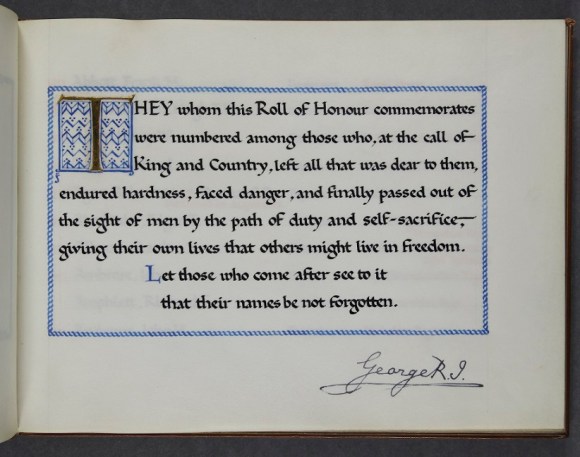 THEY whom this Roll of Honour commemorates
were numbered among those who, at the call of
King and Country, left all that was dear to them,
endured hardness, faced danger, and finally passed out of
the sight of men by the path of duty and self-sacrifice,
giving their own lives that others might live in freedom.
Let those who come after see to it
that their names be not forgotten.
George R.I.